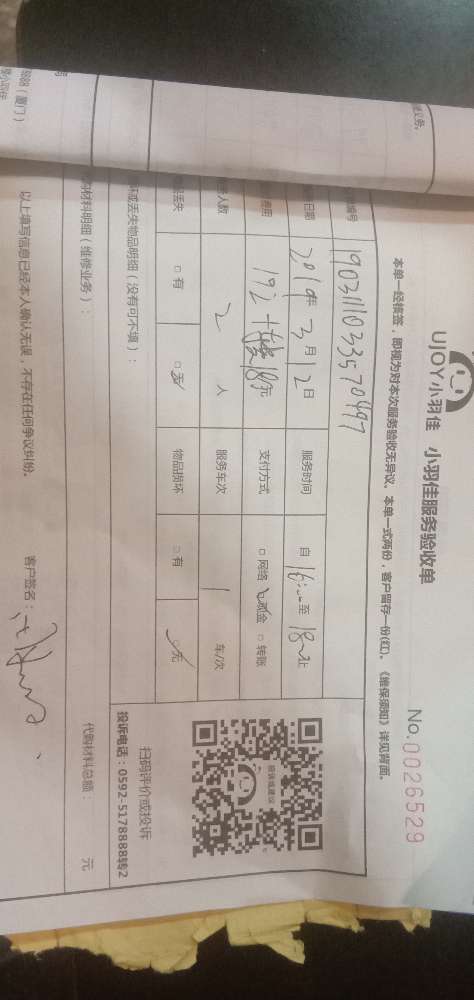 UJOY小羽佳 小羽佳服务验收单
No. 0026529
本单一经核签，即视为对本次服务验收无异议。本单一式两份，客户留存一份(红)。《维保须知》详见背面。
编号 1903111033570497
日期 2019年3月12日 服务时间 自16:00至18:00止
费用 192+ 元 支付方式 □网络 ☑现金 □转账
人数 2 人 服务车次 1 车/次
丢失 □有 ☑无 物品损坏 □有 ☑无
投诉或建议
扫码评价或投诉
投诉电话：0592-5178888转2
坏或丢失物品明细（没有可不填）：
购材料明细（维修业务）：
代购材料总额： 元
以上填写信息已经本人确认无误，不存在任何争议纠纷。
客户签名：
888（厦门）